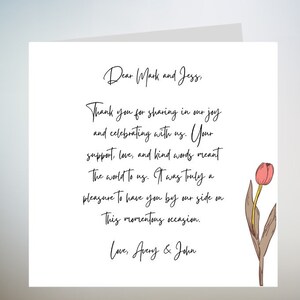 Dear Mark and Jess,
Thank you for sharing in our joy
and celebrating with us. Your
support, love, and kind words meant
the world to us. It was truly a
pleasure to have you by our side on
this momentous occasion.
Love, Avery & John